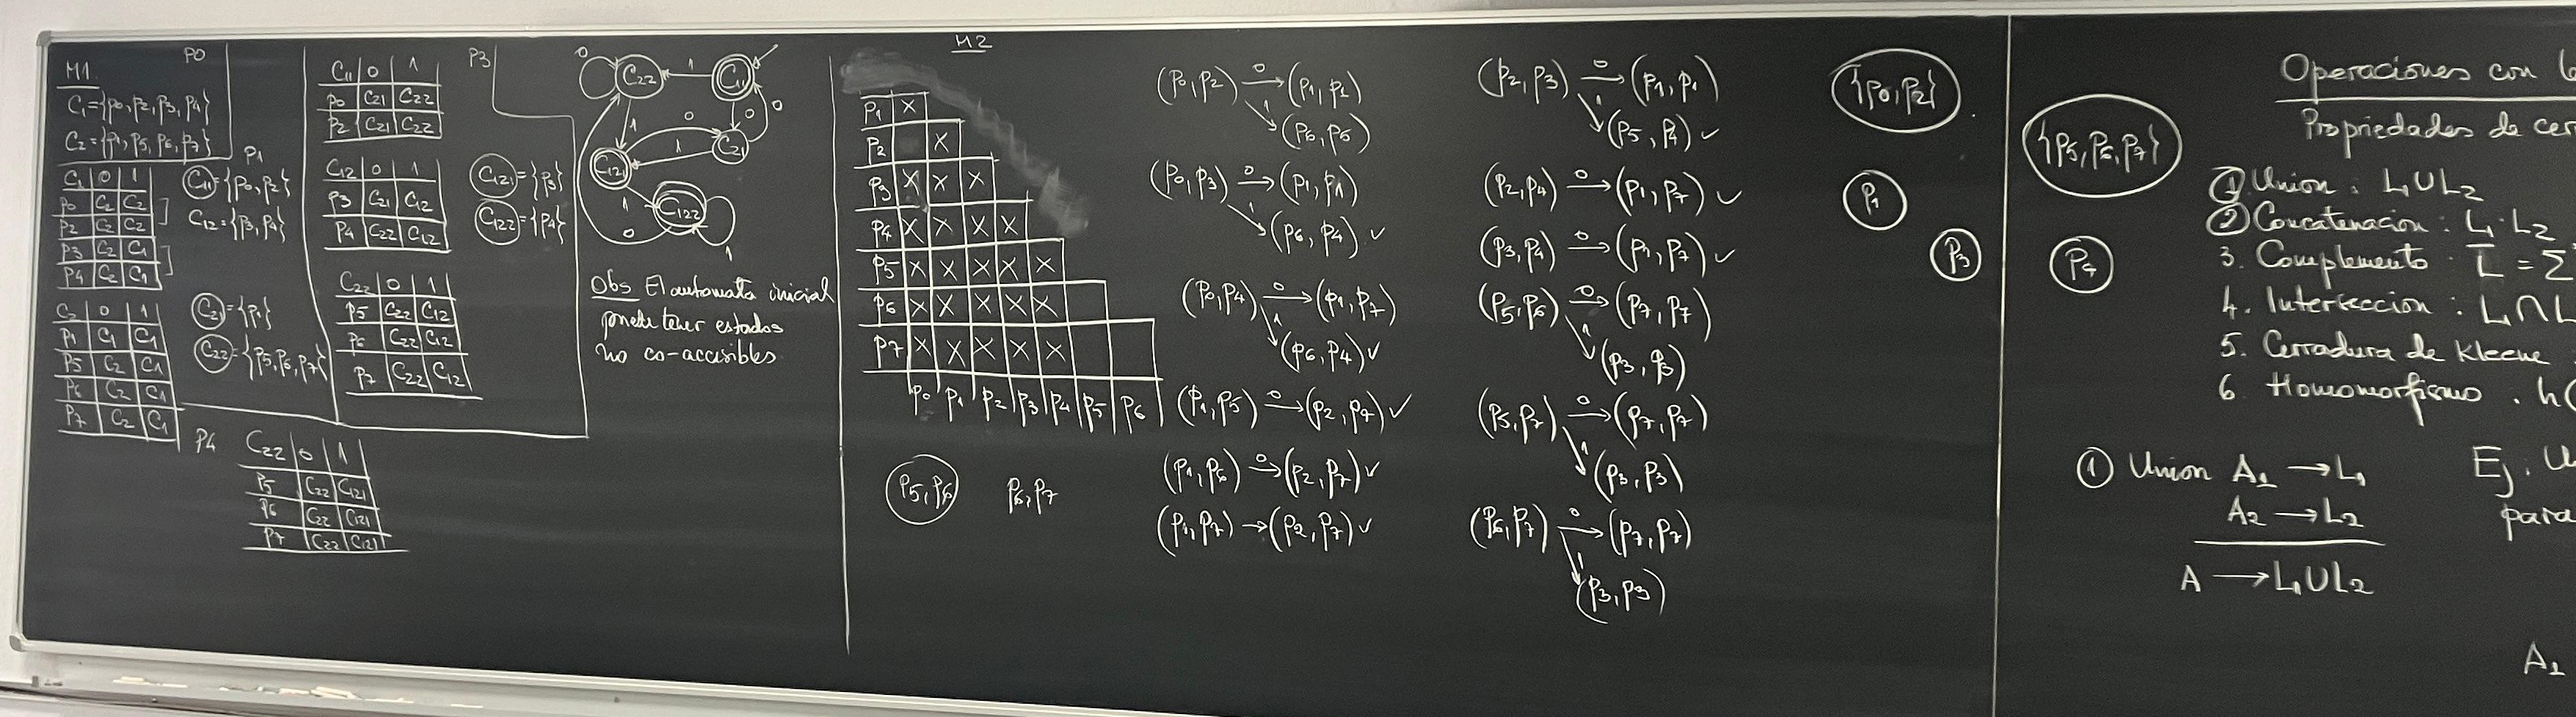 M1
P0
C1={p0,p2,p3,p4}
C2={p1,p5,p6,p7}
P1
C1 | 0 | 1
p0 | C2 | C2
p2 | C2 | C2
p3 | C2 | C1
p4 | C2 | C1
C11={p0,p2}
C12={p3,p4}
C2 | 0 | 1
p1 | C1 | C1
p5 | C2 | C1
p6 | C2 | C1
p7 | C2 | C1
C21={p1}
C22={p5,p6,p7}
P3
C11 | 0 | 1
p0 | C21 | C22
p2 | C21 | C22
C12 | 0 | 1
p3 | C21 | C12
p4 | C22 | C12
C121={p3}
C122={p4}
C22 | 0 | 1
p5 | C22 | C12
p6 | C22 | C12
p7 | C22 | C12
P4
C22 | 0 | 1
p5 | C22 | C121
p6 | C22 | C121
p7 | C22 | C121
0
C22
1
C11
1
0
0
0
C21
1
C121
1
C122
0
1
Obs El automata inicial
puede tener estados
no co-accesibles
M2
p1 X
p2 X
p3 X X X
p4 X X X X
p5 X X X X X
p6 X X X X X
p7 X X X X X
p0 p1 p2 p3 p4 p5 p6
p5,p6
p6,p7
(p0,p2) 0→ (p1,p1)
1
(p6,p5)
(p0,p3) 0→ (p1,p1)
1
(p6,p4) ✓
(p0,p4) 0→ (p1,p7)
1
(p6,p4) ✓
(p1,p5) 0→ (p2,p7) ✓
(p1,p6) 0→ (p2,p7) ✓
(p1,p7) → (p2,p7) ✓
(p2,p3) 0→ (p1,p1)
1
(p5,p4) ✓
(p2,p4) 0→ (p1,p7) ✓
(p3,p4) 0→ (p1,p7) ✓
(p5,p6) 0→ (p7,p7)
1
(p3,p3)
(p5,p7) 0→ (p7,p7)
1
(p3,p3)
(p6,p7) 0→ (p7,p7)
1
(p3,p3)
{p0,p2}
p1
p3
{p5,p6,p7}
p4
Operaciones con
Propiedades de
① Union : L1∪L2
② Concatenacion : L1·L2
3. Complemento : L̅ = Σ
4. Interseccion : L1∩L
5. Cerradura de Kleene
6. Homomorfismo . h(
① Union A1 → L1
A2 → L2
A → L1∪L2
Ej.
para
A1